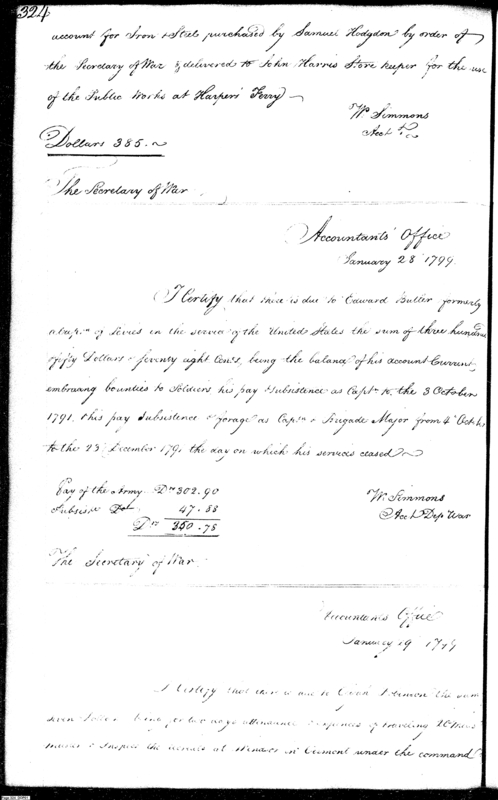 324
account for Iron & Steel purchased by Samuel Hodgdon by order of
the Secretary of War & delivered to John Harris Store keeper for the use
of the Public Works at Harpers Ferry
Wm Simmons
Acct
Dollars 385.
The Secretary of War
Accountants' Office
January 28 1799
I Certify that there is due to Edward Butler formerly
a Captn of Levies in the service of the United States the sum of three hundred
fifty Dollars & seventy eight Cents, being the balance of his account Current
embracing bounties to Soldiers his pay & Subsistence as Captn to the 3 October
1791, & his pay Subsistence & forage as Captn & Brigade Major from 4th October
to the 23 December 179 the day on which his services ceased
Pay of the Army Drs 302.90
Subsisce 47.88
Drs 350.78
W. Simmons
Acct Dep War
The Secretary of War
Accountants Office
January 29 1799
I Certify that there is due to the sum
seven Dollars being for two days attendance & expences of traveling
muster & Inspect the recruits at Windsor in Vermont under the command